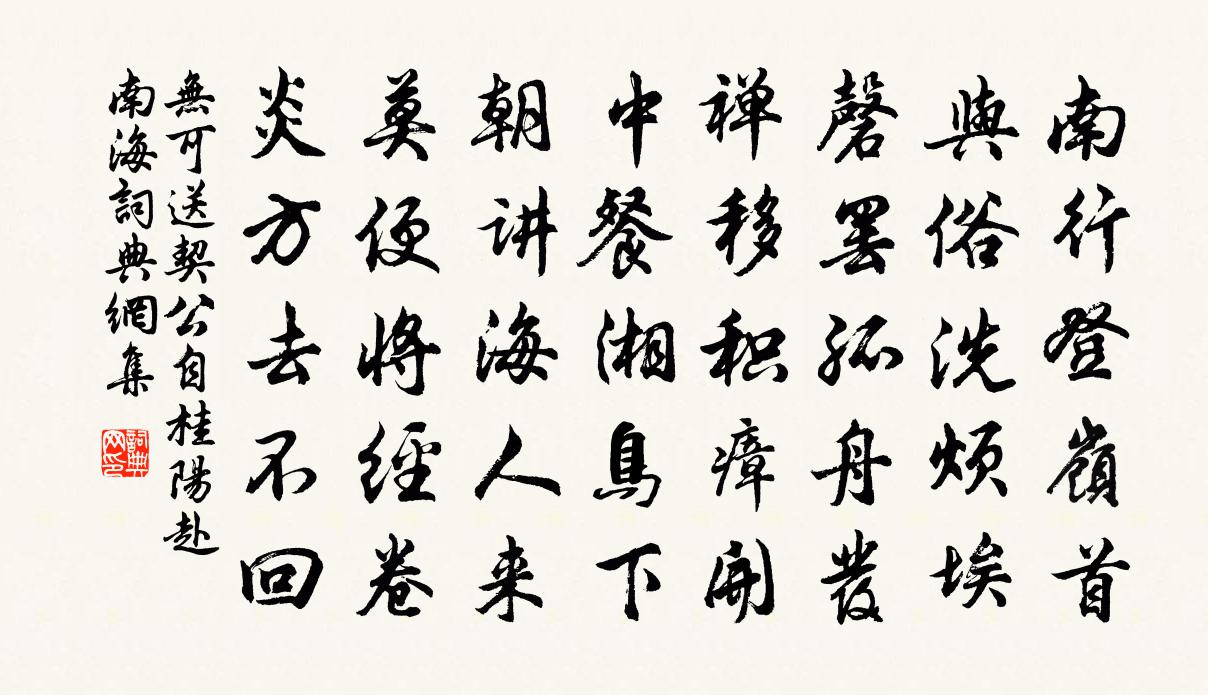 南行登嶺首
與俗洗煩埃
磬罢孤舟發
禅移积瘴開
中餐湘鳥下
朝讲海人来
莫便将經卷
炎方去不回
無可送契公自桂陽赴
南海詞典網集
詞典
网印